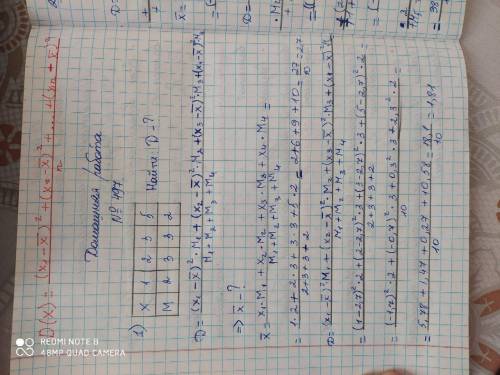 D(X) = (x₁ - x̄)² + (x₂ - x̄)² + .... + (xₙ - x̄)²
n
Домашняя работа
№ 497
1)
X 1 2 3 5
M 2 3 3 2
Найти: D = ?
D = (x₁ - x̄)² · M₁ + (x₂ - x̄)² · M₂ + (x₃ - x̄)² · M₃ + (x₄ - x̄)² · M₄
M₁ + M₂ + M₃ + M₄
=> x̄ - ?
x̄ = x₁ · M₁ + x₂ · M₂ + x₃ · M₃ + x₄ · M₄ =
M₁ + M₂ + M₃ + M₄
= 1 · 2 + 2 · 3 + 3 · 3 + 5 · 2 = 2 + 6 + 9 + 10 = 27 = 2,7
2 + 3 + 3 + 2 10
D = (x₁ - x̄)² · M₁ + (x₂ - x̄)² · M₂ + (x₃ - x̄)² · M₃ + (x₄ - x̄)² · M₄
M₁ + M₂ + M₃ + M₄
= (1 - 2,7)² · 2 + (2 - 2,7)² · 3 + (3 - 2,7)² · 3 + (5 - 2,7)² · 2 =
2 + 3 + 3 + 2
= (-1,7)² · 2 + (-0,7)² · 3 + 0,3² · 3 + 2,3² · 2 =
10
= 5,78 + 1,47 + 0,27 + 10,58 = 18,1 = 1,81
10 10
REDMI NOTE 8
48MP QUAD CAMERA